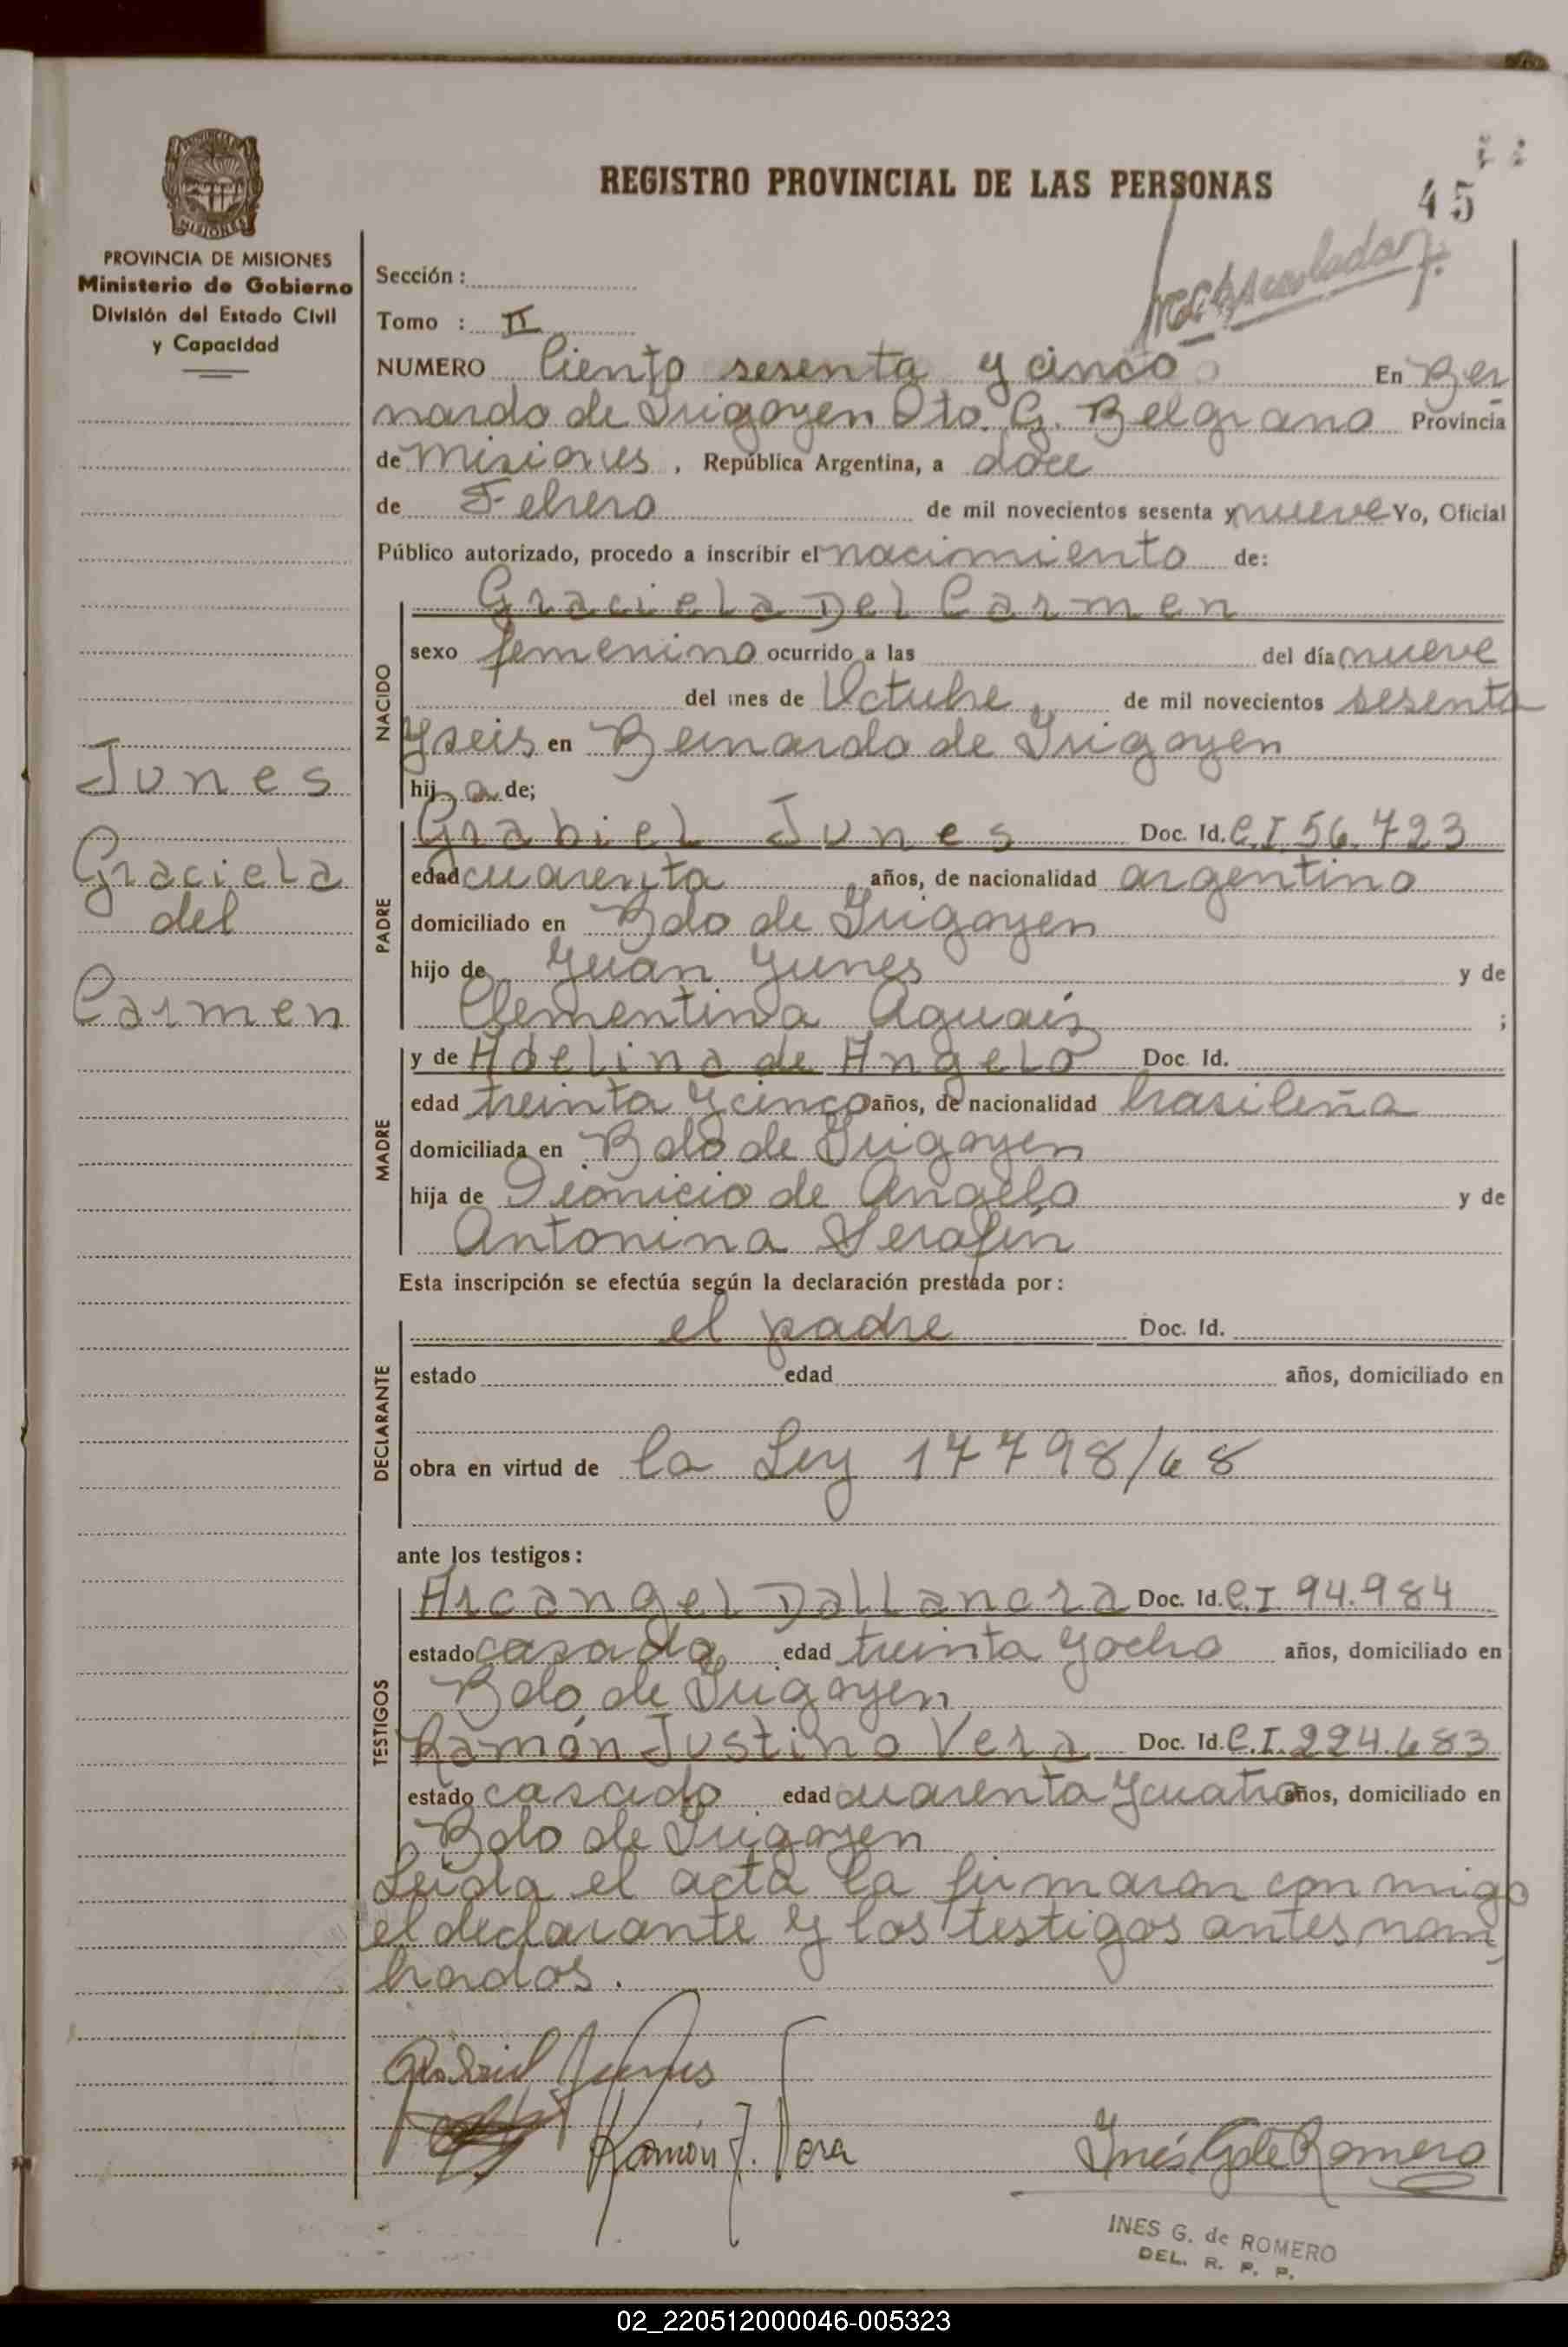 REGISTRO PROVINCIAL DE LAS PERSONAS
45
PROVINCIA DE MISIONES
Ministerio de Gobierno
División del Estado Civil
y Capacidad
Junes
Graciela
del
Carmen
Sección :
Tomo : II
NUMERO Ciento sesenta y cinco En Ber
nardo de Irigoyen Dto. G. Belgrano Provincia
de Misiones , República Argentina, a doce
de Febrero de mil novecientos sesenta y nueve Yo, Oficial
Público autorizado, procedo a inscribir el nacimiento de:
NACIDO
Graciela Del Carmen
sexo femenino ocurrido a las del día nueve
del mes de Octubre de mil novecientos sesenta
y seis en Bernardo de Irigoyen
hij a de;
PADRE
Grabiel Junes Doc. Id. C.I 56.723
edad cuarenta años, de nacionalidad argentino
domiciliado en Bdo de Irigoyen
hijo de Juan Junes y de
Clementina ;
MADRE
y de Adelina de Angelo Doc. Id.
edad treinta y cinco años, de nacionalidad brasileña
domiciliada en Bdo de Irigoyen
hija de Dionicio de Angelo y de
Antonina Serafin
Esta inscripción se efectúa según la declaración prestada por :
DECLARANTE
el padre Doc. Id.
estado edad años, domiciliado en
obra en virtud de la Ley 17798/68
ante los testigos :
TESTIGOS
Arcangel Dallanora Doc. Id. C.I 94.984
estado casado edad treinta y ocho años, domiciliado en
Bdo de Irigoyen
Ramón Justino Vera Doc. Id. C.I. 224.683
estado casado edad cuarenta y cuatro años, domiciliado en
Bdo de Irigoyen
Leida el acta la firmaron con migo
el declarante y los testigos antes nom
brados.
Gabriel Junes
Ramón J. Vera
Inés G de Romero
INES G. de ROMERO
DEL. R. P. P.
02_220512000046-005323